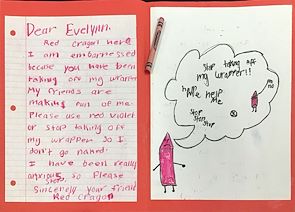 Dear Evelynn.
Red Crayon here
I am embarressed
becuse you have been
taking off my wrapper
My friends are
making fun of me.
Please use red violet
or stop taking off
my wrapper. So I
don't go naked.
I have been really
so Please
stop.
Sincerely your friend
Red Crayon
Stop taking off
my wrapper!!
help Me help
Me
Stop
Stop
Stop
no
no